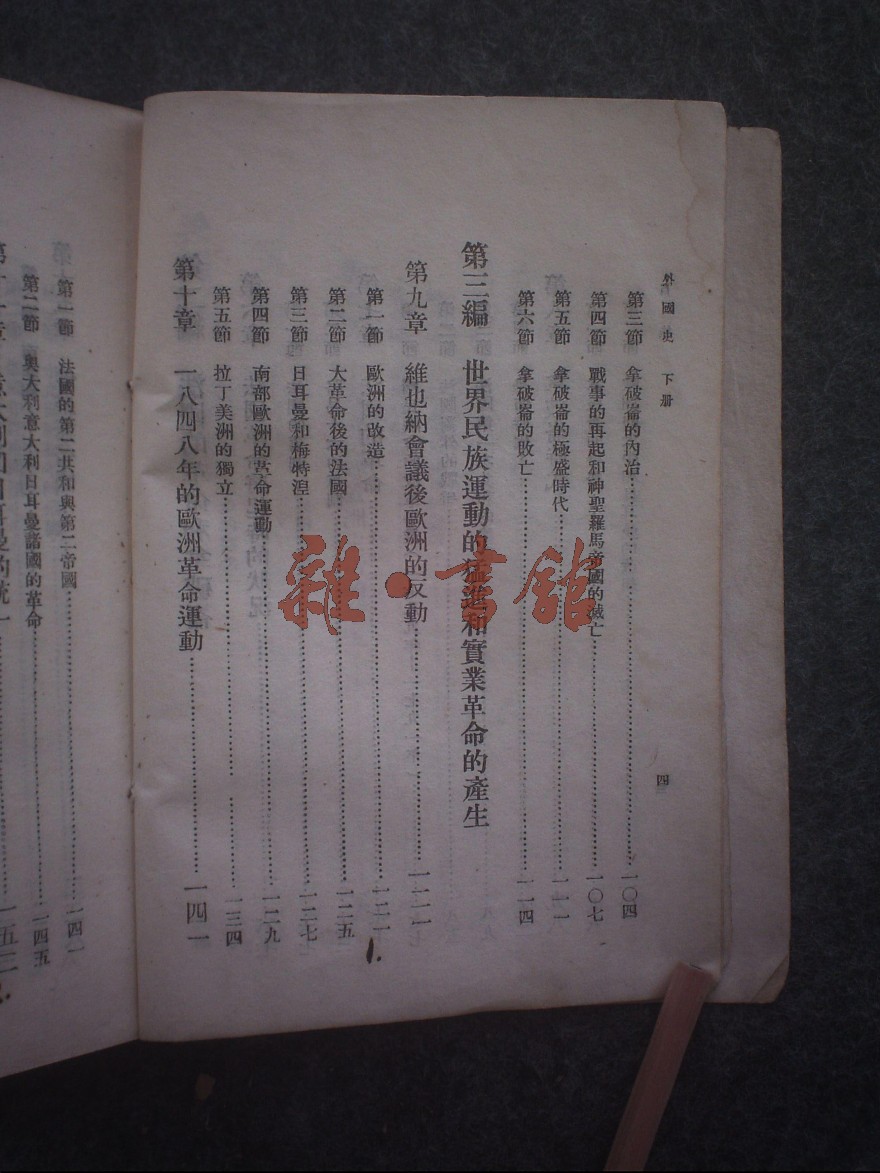 外國史 下册 四
第三節 拿破崙的內治 一〇四
第四節 戰事的再起和神聖羅馬帝國的滅亡 一〇七
第五節 拿破崙的極盛時代 一一一
第六節 拿破崙的敗亡 一一四
第三編 世界民族運動的猛進和實業革命的產生
第九章 維也納會議後歐洲的反動 一二一
第一節 歐洲的改造 一二一
第二節 大革命後的法國 一二五
第三節 日耳曼和梅特湼 一二七
第四節 南部歐洲的革命運動 一二九
第五節 拉丁美洲的獨立 一三四
第十章 一八四八年的歐洲革命運動 一四一
第一節 法國的第二共和與第二帝國 一四一
第二節 奧大利意大利日耳曼諸國的革命 一四五
雜·書館